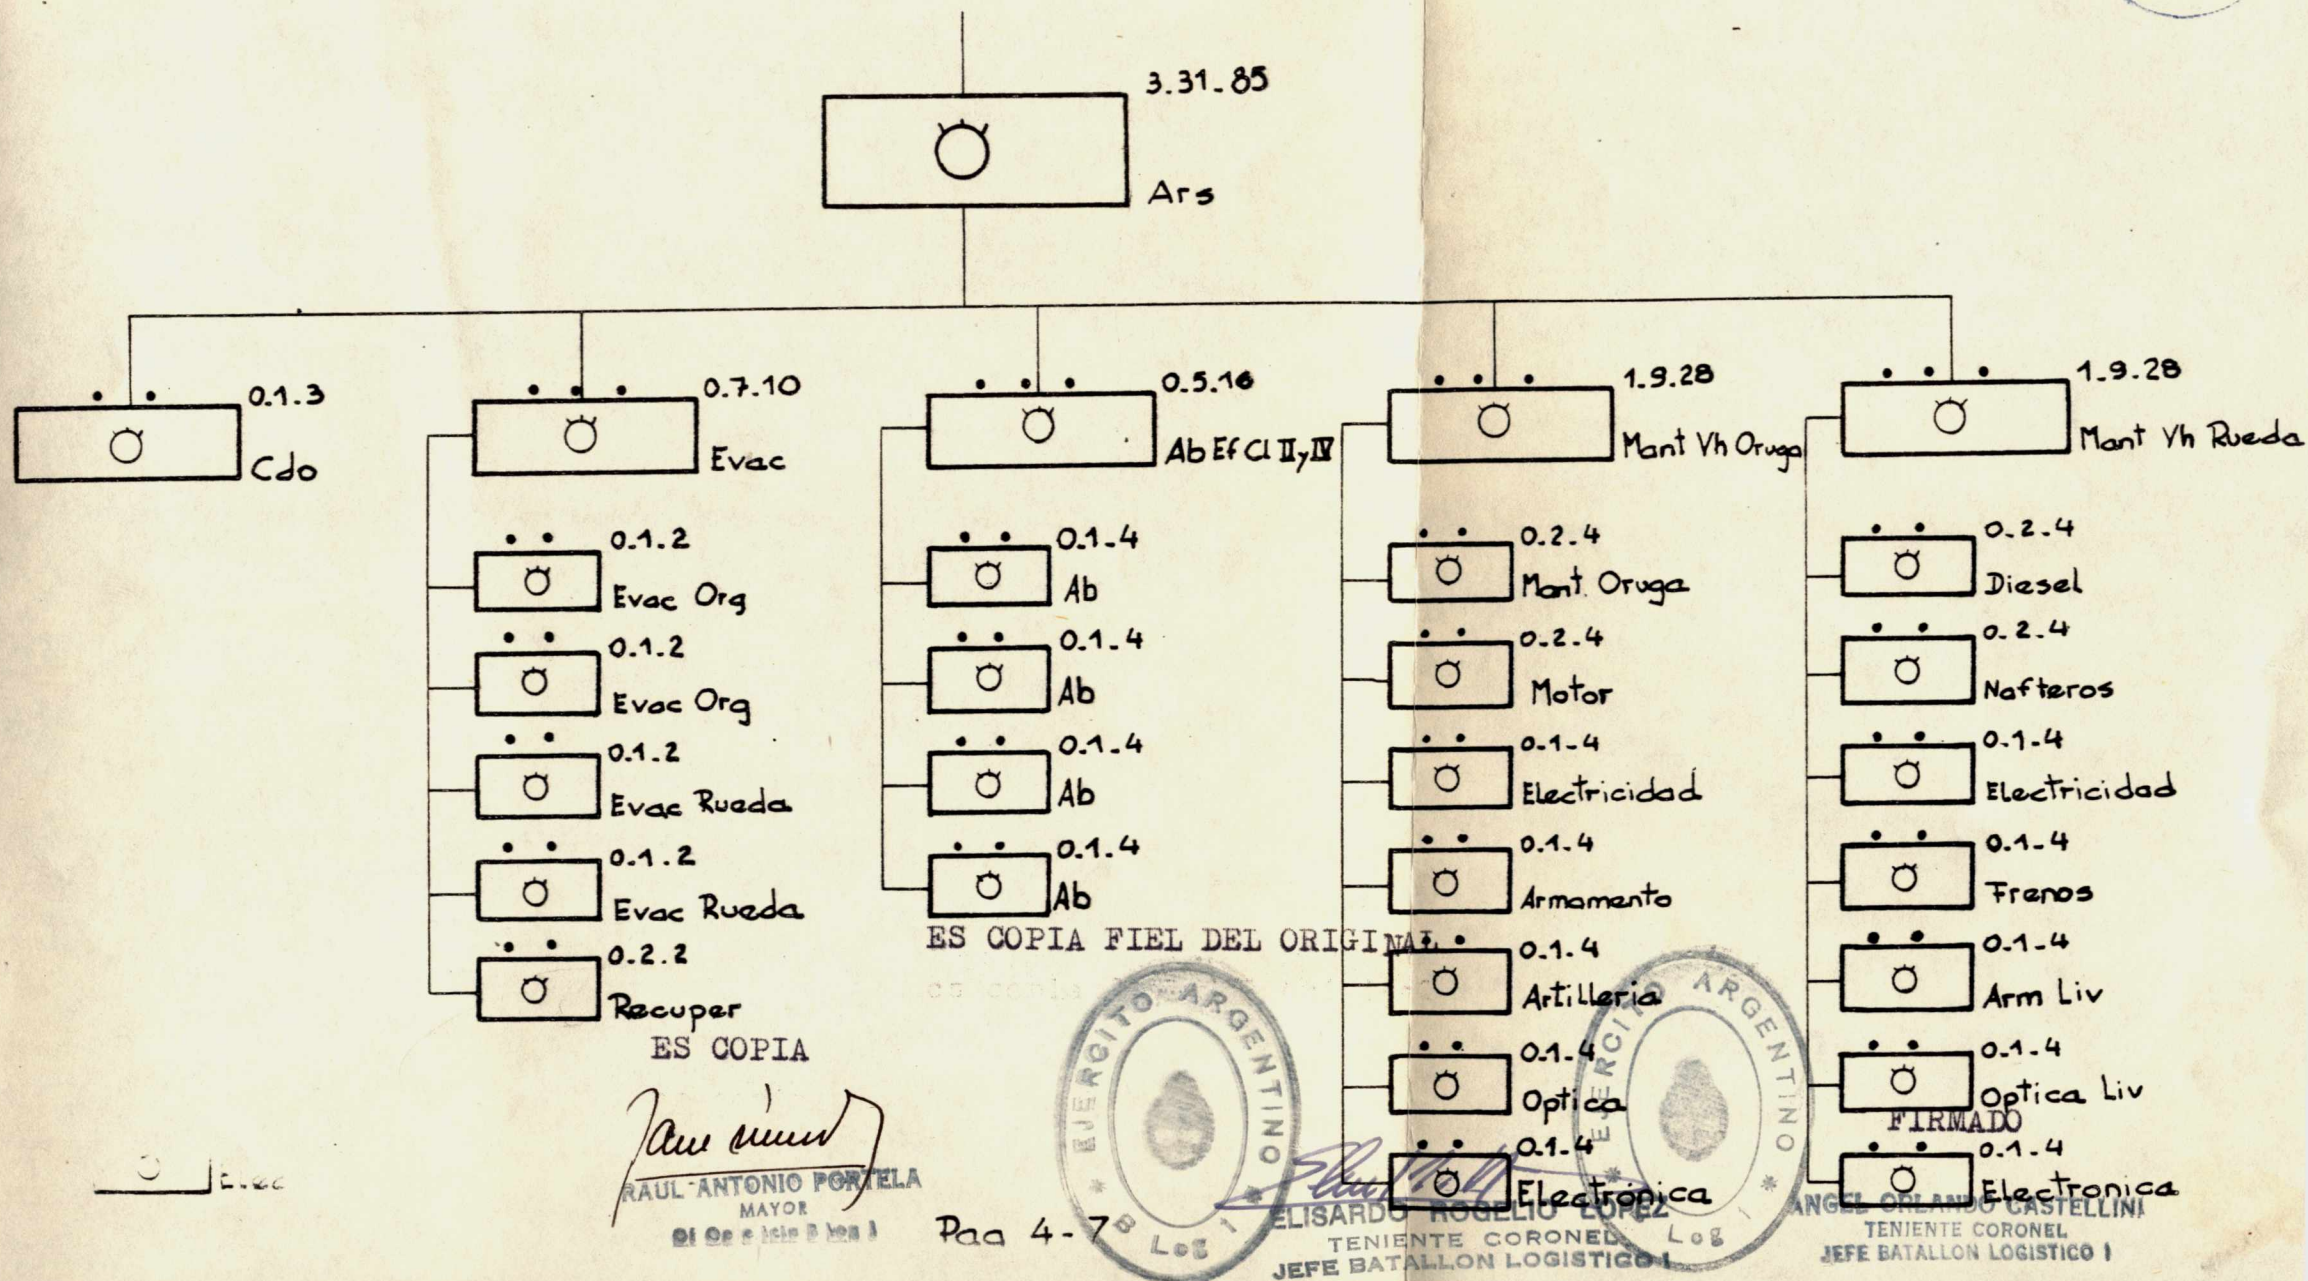 3.31-85
Ars
0.1.3
Cdo
0.7.10
Evac
0.1.2
Evac Org
0.1.2
Evac Org
0.1.2
Evac Rueda
0.1.2
Evac Rueda
0.2.2
Recuper
0.5.16
Ab Ef Cl II y IV
0.1-4
Ab
0.1-4
Ab
0.1-4
Ab
0.1.4
Ab
1-9.28
Mant Vh Oruga
0.2.4
Mant. Oruga
0.2.4
Motor
0-1-4
Electricidad
0.1.4
Armamento
0.1.4
Artilleria
0.1-4
Optica
0.1.4
Electrónica
1-9.28
Mant Vh Rueda
0.2.4
Diesel
0.2.4
Nafteros
0.1.4
Electricidad
0.1-4
Frenos
0.1-4
Arm Liv
0.1.4
Optica Liv
0.1.4
Electronica
ES COPIA FIEL DEL ORIGINAL
ES COPIA
RAUL ANTONIO PORTELA
MAYOR
EJERCITO ARGENTINO
B Log 1
ELISARDO ROGELIO LOPEZ
TENIENTE CORONEL
JEFE BATALLON LOGISTICO 1
EJERCITO ARGENTINO
Log 1
FIRMADO
ANGEL ORLANDO CASTELLINI
TENIENTE CORONEL
JEFE BATALLON LOGISTICO 1
Elec
Pag 4-7